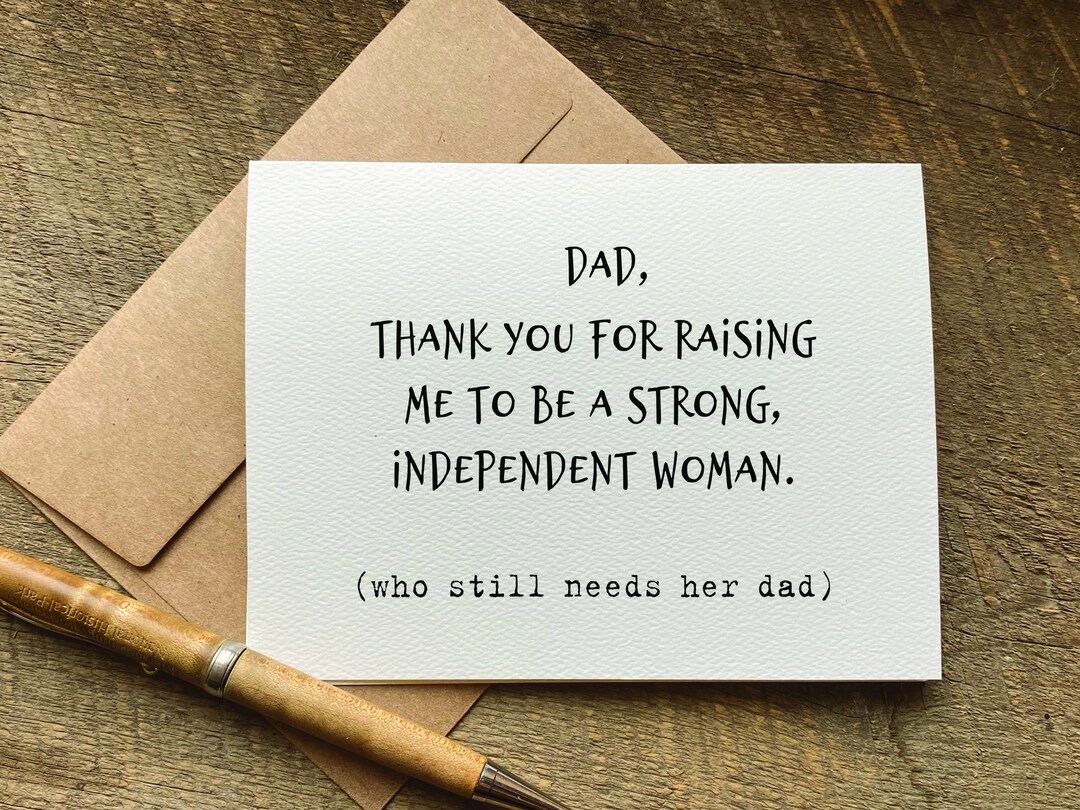 DAD,
THANK YOU FOR RAiSiNG
ME TO BE A STRONG,
iNDEPENDENT WOMAN.
(who still needs her dad)
Historical Park